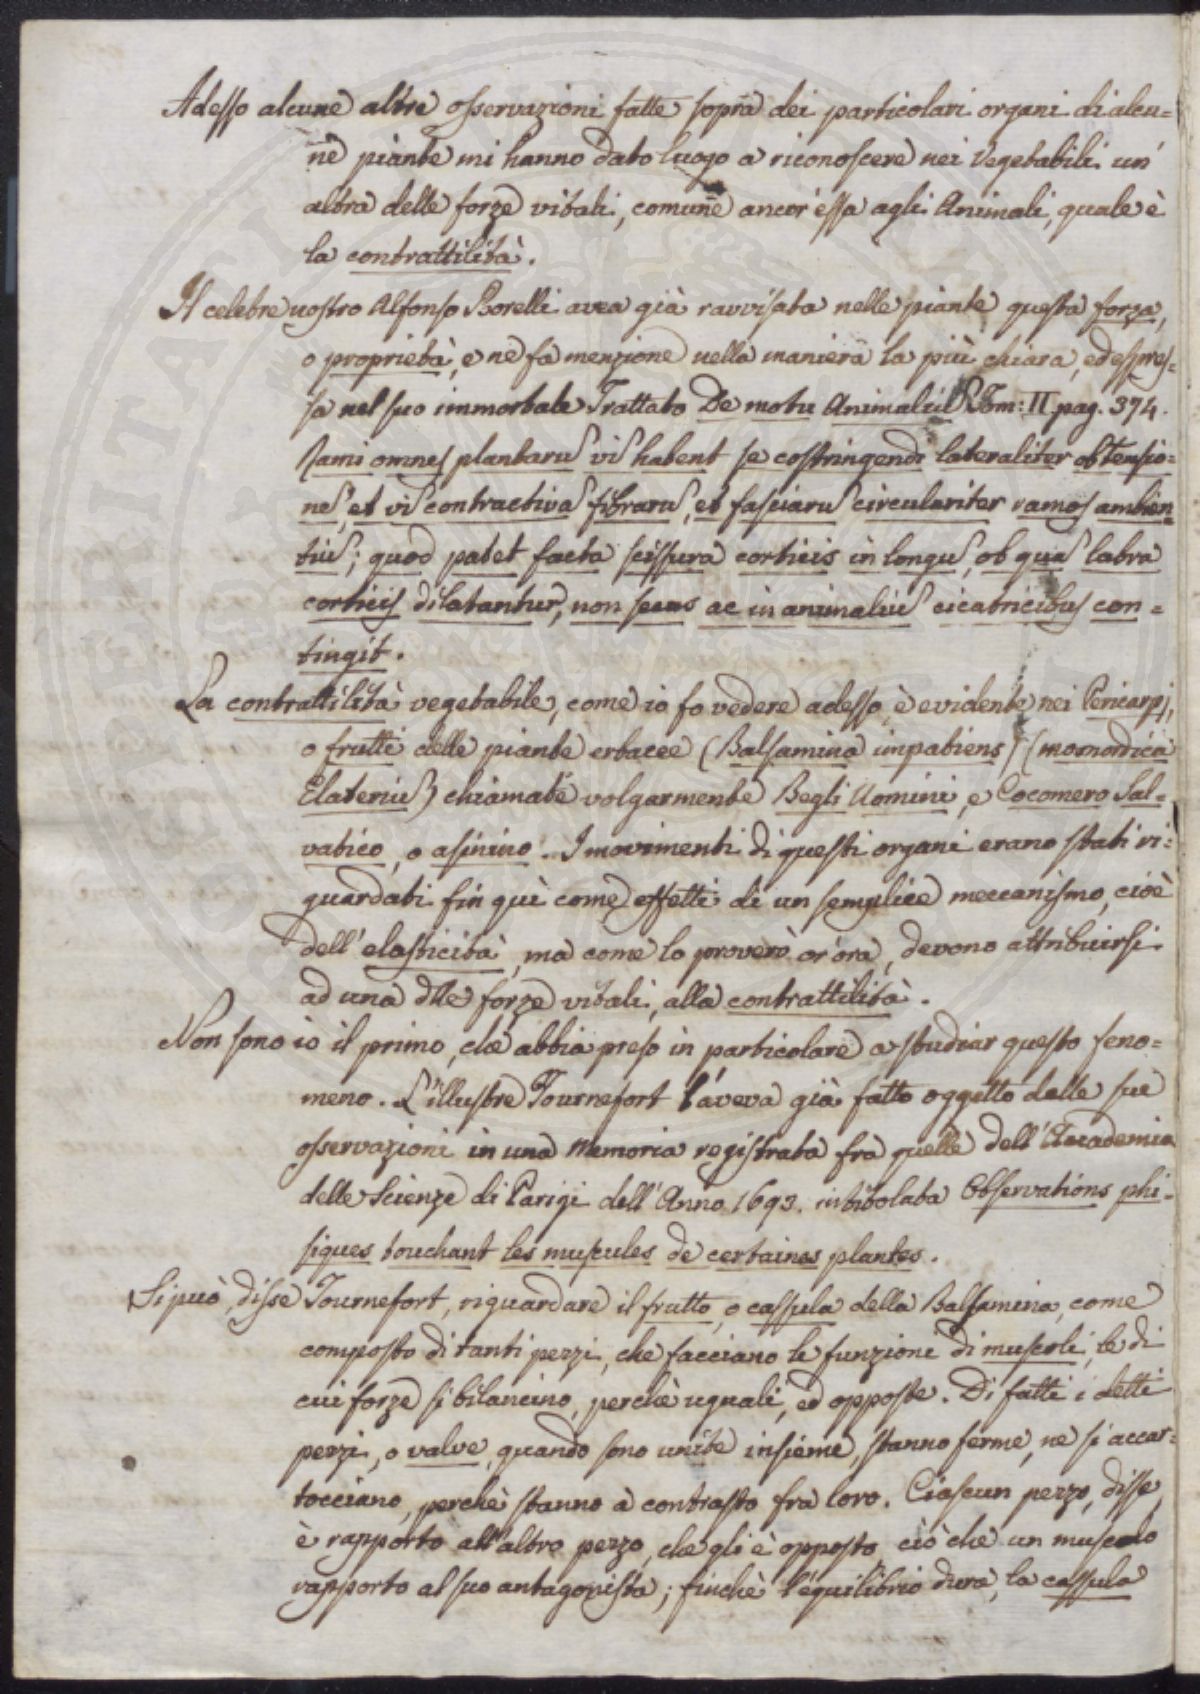 Adesso alcune altre osservazioni fatte sopra dei particolari organi di alcu=
ne piante mi hanno dato luogo a riconoscere nei Vegetabili un'
altra delle forze vitali, comune ancor'essa agli Animali, quale è
la contrattilità.
Il celebre nostro Alfonso Borelli avea già ravvisata nelle piante questa forza,
o proprietà, e ne fa menzione nella maniera la più chiara, ed espres=
sa nel suo immortale Trattato De motu Animaliũ Tom: II. pag. 374.
Rami omnes plantarũ vim̃ habent se costringendi lateraliter ob tensio=
nẽ, et vim̃ contractivã fibrarũ, et fasciarũ circulariter ramos ambien=
tiũ; quod patet facta scissura corticis in longũ, ob quã labra
corticis dilatantur, non secus ac in animaliũ cicatricibus con=
tingit.
La contrattilità vegetabile, come io fo vedere adesso, è evidente nei Pericarpj,
o frutti delle piante erbacee (Balsamina impatiens) (momordica
Elateriũ) chiamate volgarmente Begli Uomini, e Cocomero Sal=
vatico, o asinino. I movimenti di questi organi erano stati ri=
guardati fin quì come effetti di un semplice meccanismo, cioè
dell'elasticità, ma come lo proverò or'ora, devono attribuirsi
ad una dlle forze vitali, alla contrattilità.
Non sono io il primo, che abbia preso in particolare a studiar questo feno=
meno. L'illustre Tournefort l'aveva già fatto oggetto delle sue
osservazioni in una Memoria registrata fra quelle dell'Accademia
delle Scienze di Parigi dell'Anno 1693. intitolata Observations phi=
siques touchant les muscules de certaines plantes.
Si può, disse Tournefort, riguardare il frutto, o cassula della Balsamina, come
composto di tanti pezzi, che facciano le funzioni di muscoli, le di
cui forze si bilancino, perchè uguali, ed opposte. Di fatti i detti
pezzi, o valve, quando sono unite insieme, stanno ferme, ne si accar=
tocciano, perchè stanno a contrasto fra loro. Ciascun pezzo, disse,
è rapporto all'altro pezzo, che gli è opposto ciò che un muscolo
rapporto al suo antagonista; finchè l'equilibrio dura, la cassula